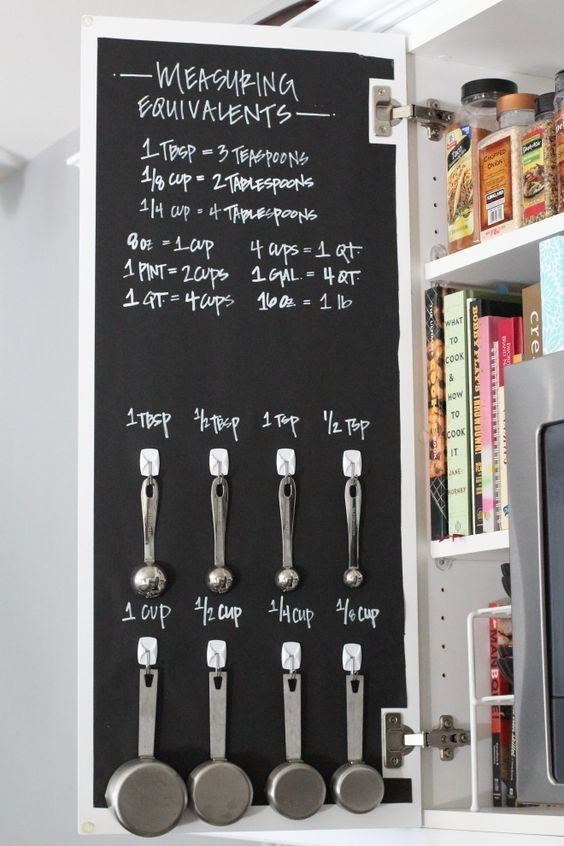 MEASURING
EQUIVALENTS
1 TBSP = 3 TEASPOONS
1/8 CUP = 2 TABLESPOONS
1/4 CUP = 4 TABLESPOONS
8oz = 1 CUP
4 CUPS = 1 QT.
1 PINT = 2 CUPS
1 GAL. = 4 QT.
1 QT. = 4 CUPS
16 oz = 1 lb
1 TBSP
1/2 TBSP
1 TSP
1/2 TSP
1 CUP
1/2 CUP
1/4 CUP
1/8 CUP
CHOPPED
ONION
WHAT TO COOK & HOW TO COOK IT
JANE HORNBY
BOBBY FLAY'S THROWDOWN!
cre